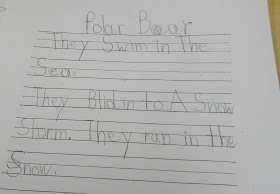 Polar Bear
They Swim in The
Sea.
They Blidin to A Snow
Storm. They run in the
Snow.